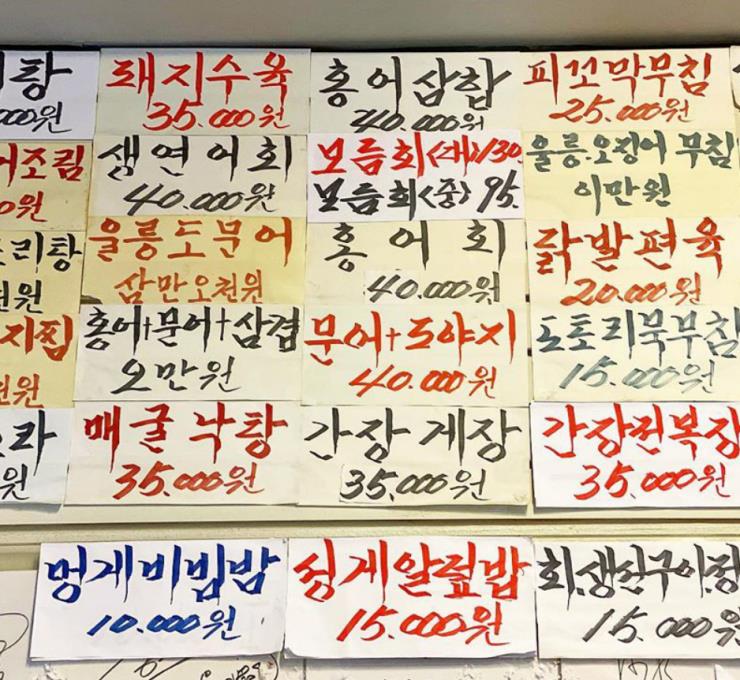 탕 돼지수육 홍어삼합 피꼬막무침
000원 35.000원 40.000원 25.000원
어조림 생연어회 보름회<대>130 울릉.오징어 무침
0원 40.000원 보름회<중> 95. 이만원
리탕 울릉도문어 홍어회 닭발편육
원 삼만오천원 40.000원 20.000원
지찜 홍어+문어+삼겹 문어+도야지 도토리묵무침
원 오만원 40.000원 15.000원
라 매굴낙탕 간장게장 간장전복장
원 35.000원 35.000원 35.000원
멍게비빔밥 성게알덮밥 회.생선구이.정
10.000원 15.000원 15.000원